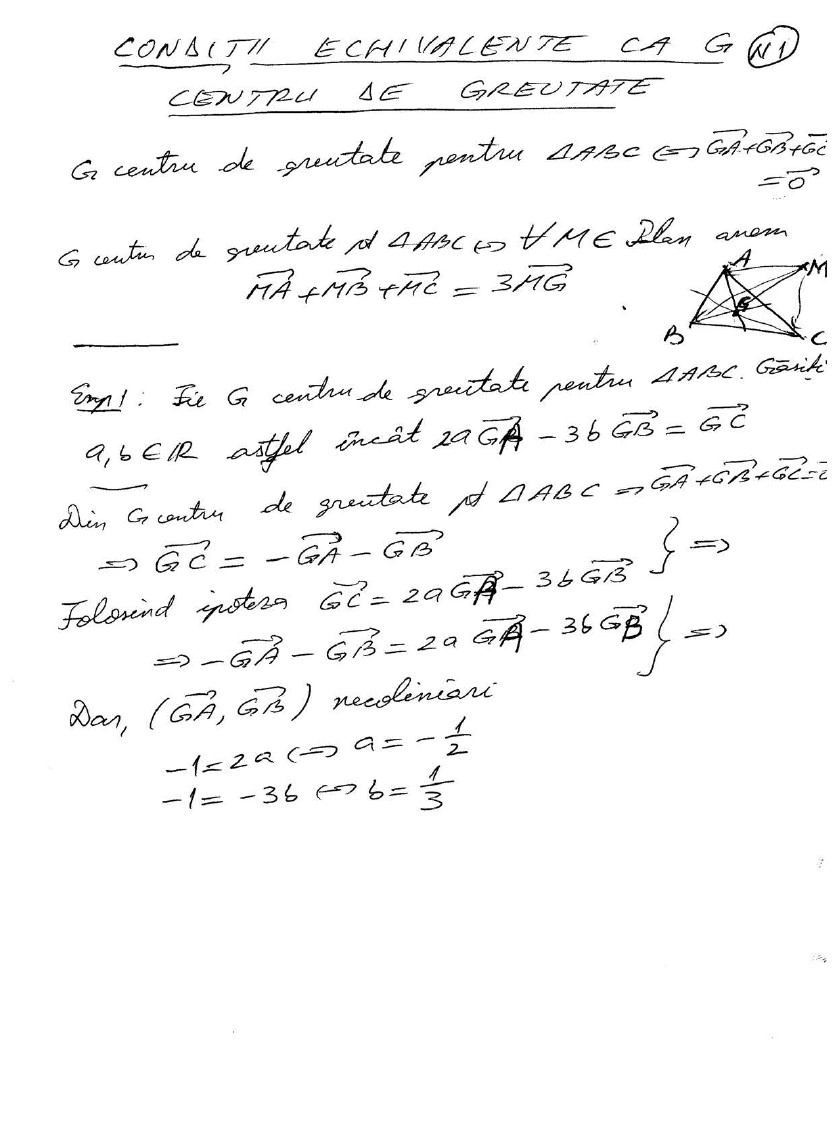 CONDIȚII ECHIVALENTE CA G N1
CENTRU DE GREUTATE
G centru de greutate pentru △ABC ⟺ G͞A⃗+GB⃗+GC⃗
=0⃗
G centru de greutate pt △ABC ⟺ ∀ M ∈ Plan avem
MA⃗ + MB⃗ + MC⃗ = 3MG⃗
A
M
G
B
C
Exp1: Fie G centru de greutate pentru △ABC. Găsiți
a,b ∈ ℝ astfel încât 2a GA⃗ - 3b GB⃗ = GC⃗
Din G centru de greutate pt △ABC ⟹ GA⃗+GB⃗+GC⃗=0
⟹ GC⃗ = -GA⃗ - GB⃗ } ⟹
Folosind ipoteza GC⃗ = 2a GA⃗ - 3b GB⃗
⟹ -GA⃗ - GB⃗ = 2a GA⃗ - 3b GB⃗ } ⟹
Dar, (GA⃗, GB⃗) necoliniari
-1=2a ⟺ a = -1/2
-1= -3b ⟺ b = 1/3